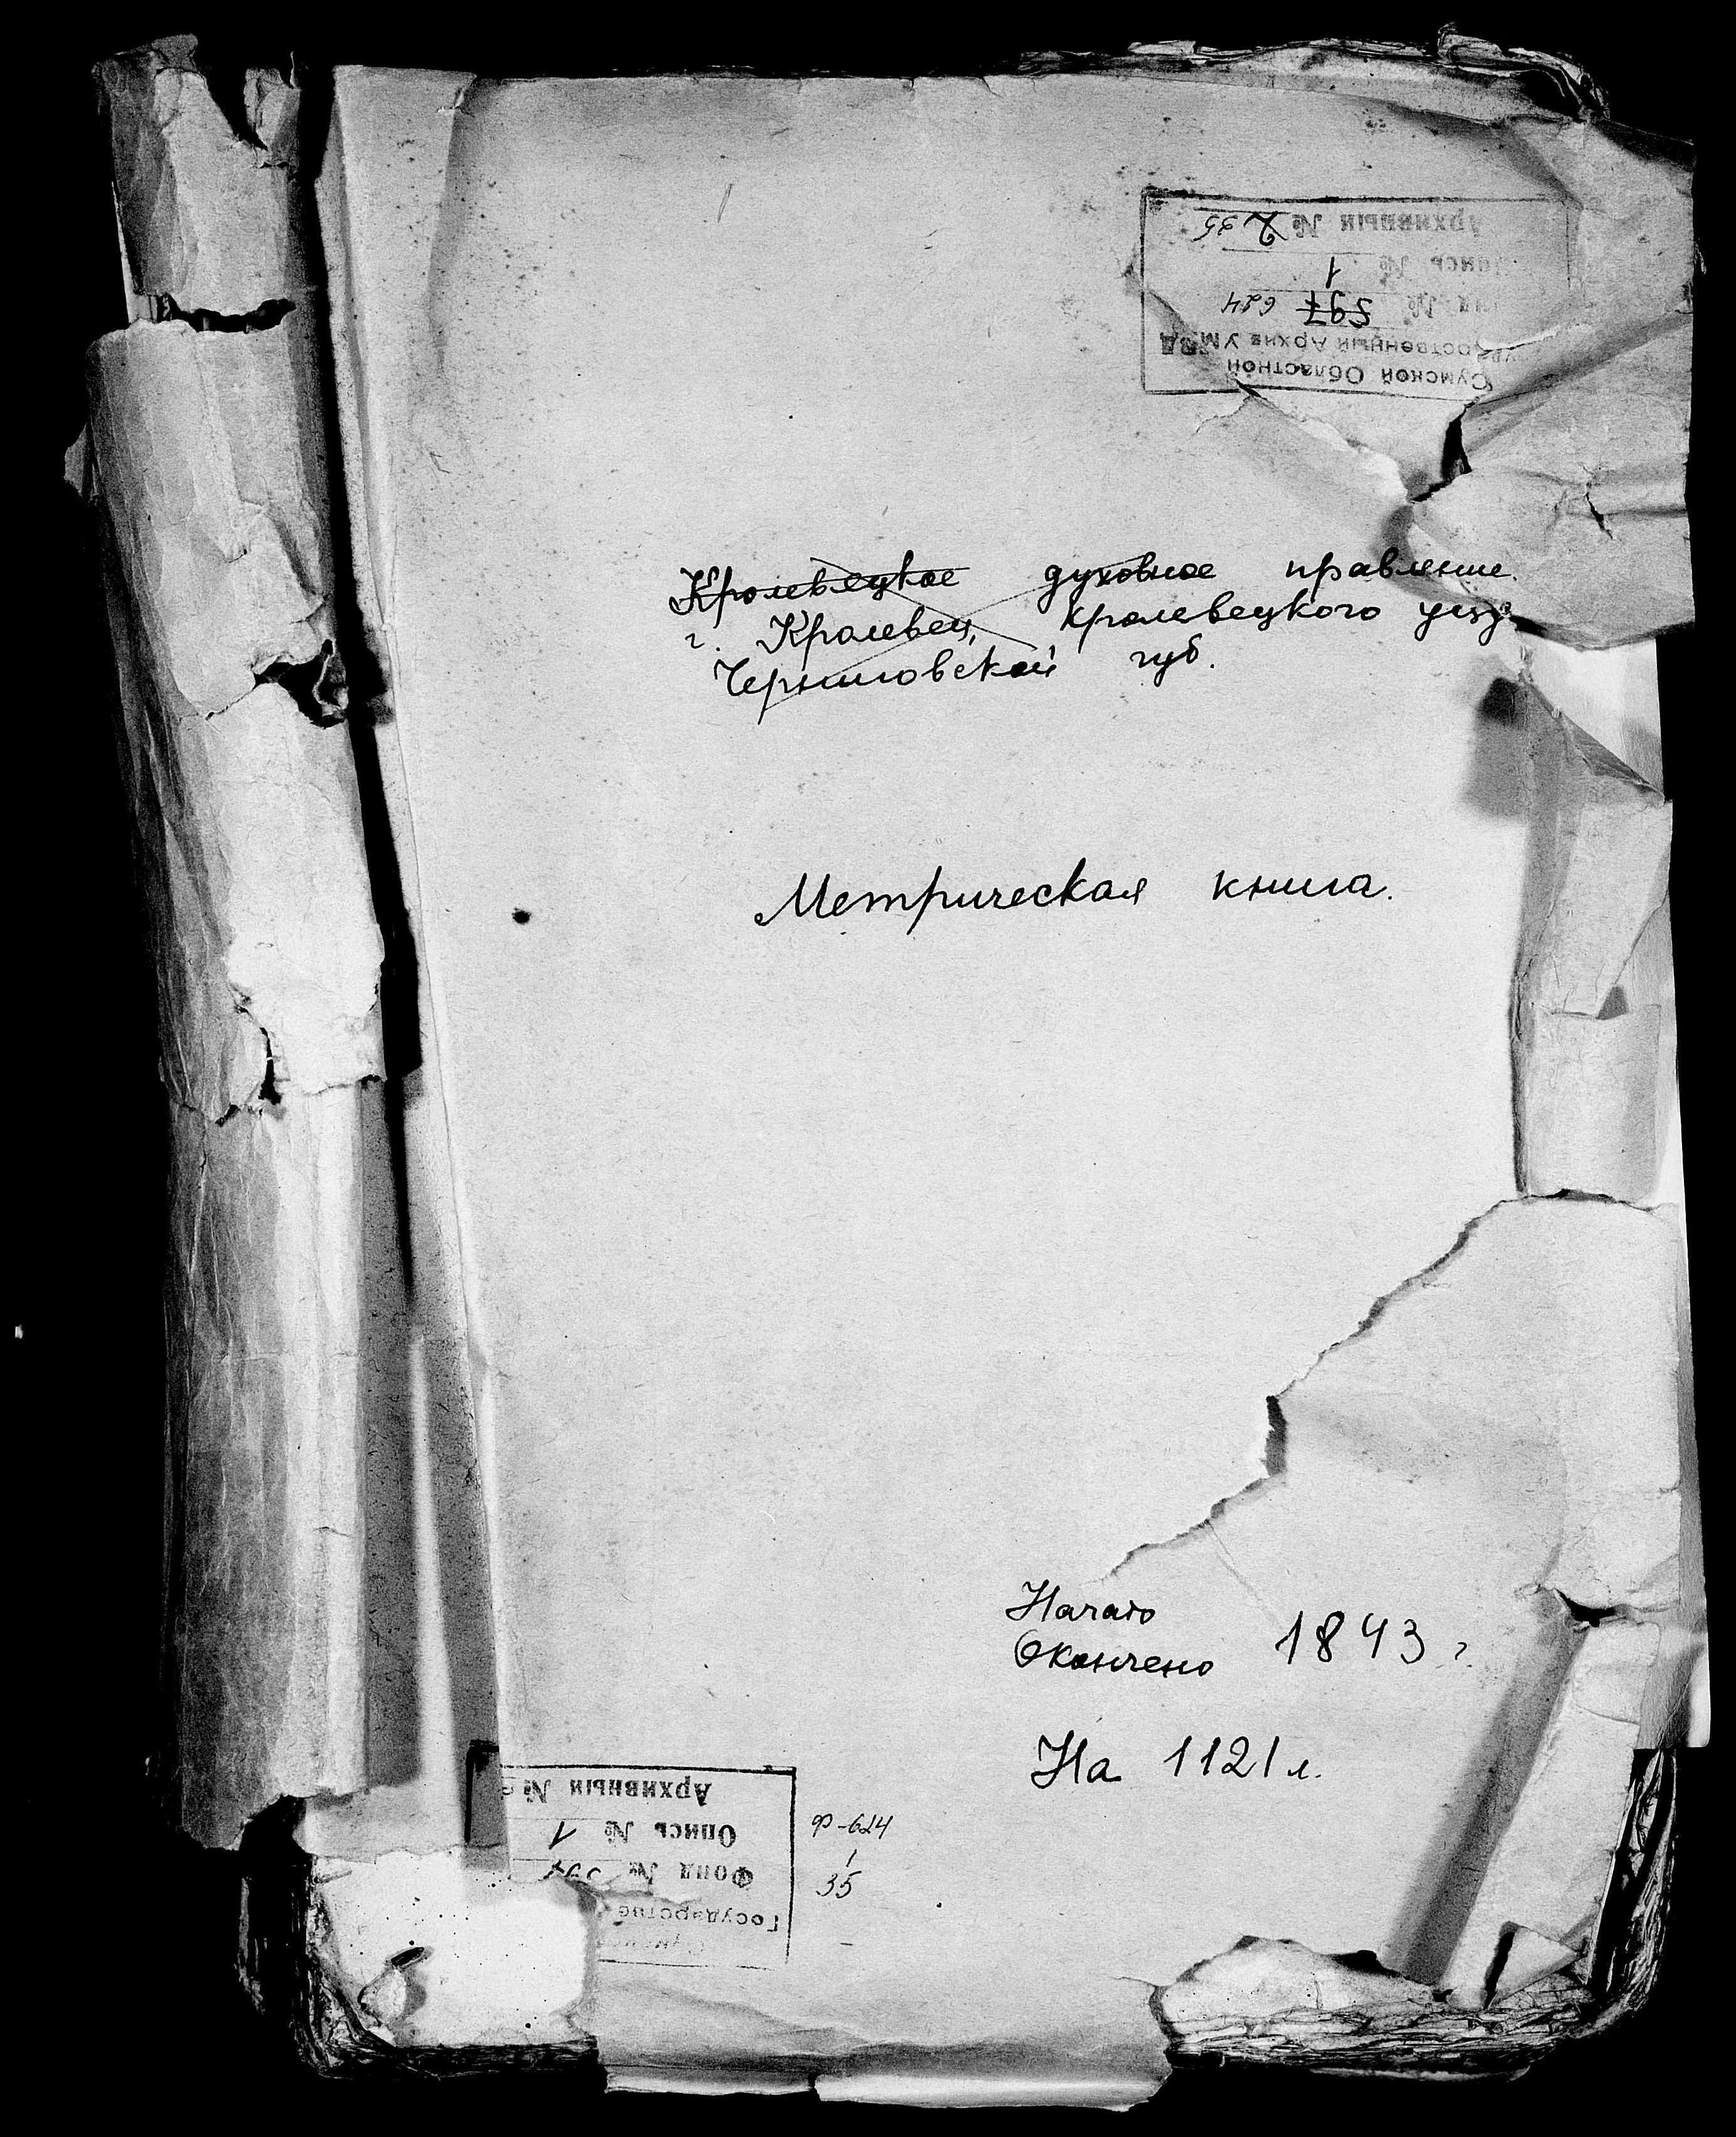 Сумской Областной
Государственный Архив УМВД
Фонд № 597 624
Опись № 1
Архивный № 2 35
Кролевецкое духовное правление.
г. Кролевец, Кролевецкого уезд
Черниговской губ.
Метрическая книга.
Начато
Окончено 1843 г
На 1121 л.
Государстве
Фонд №
Опись № 1
Архивный №
Ф-624
1
35